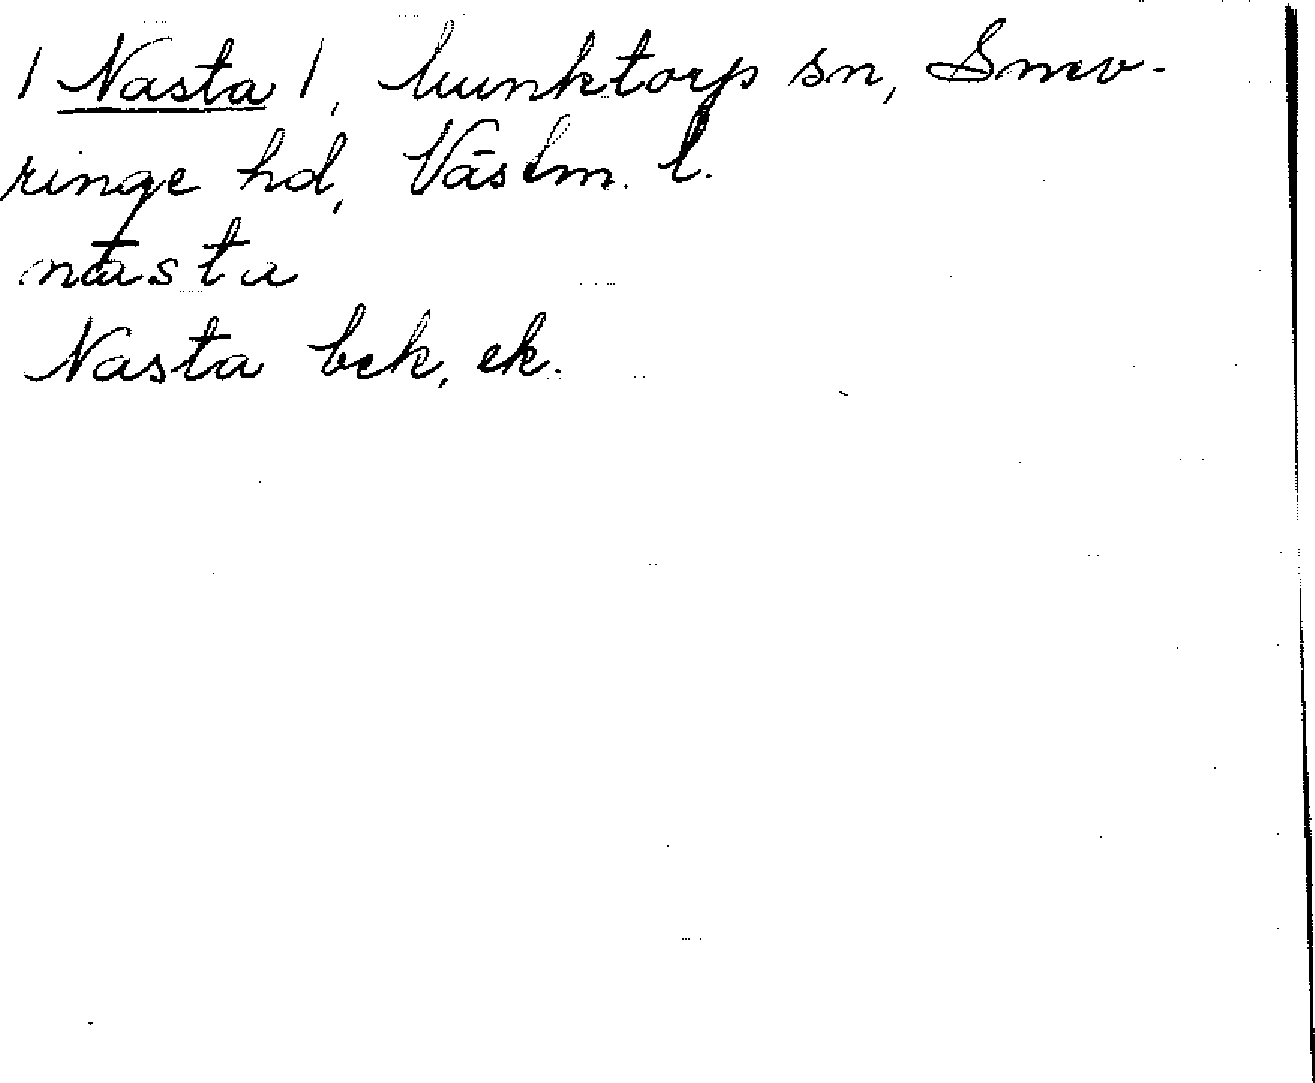 / Nasta /, Munktorp sn, Snev-
ringe hd, Västm. l.
nasta
Nasta bek, ek.